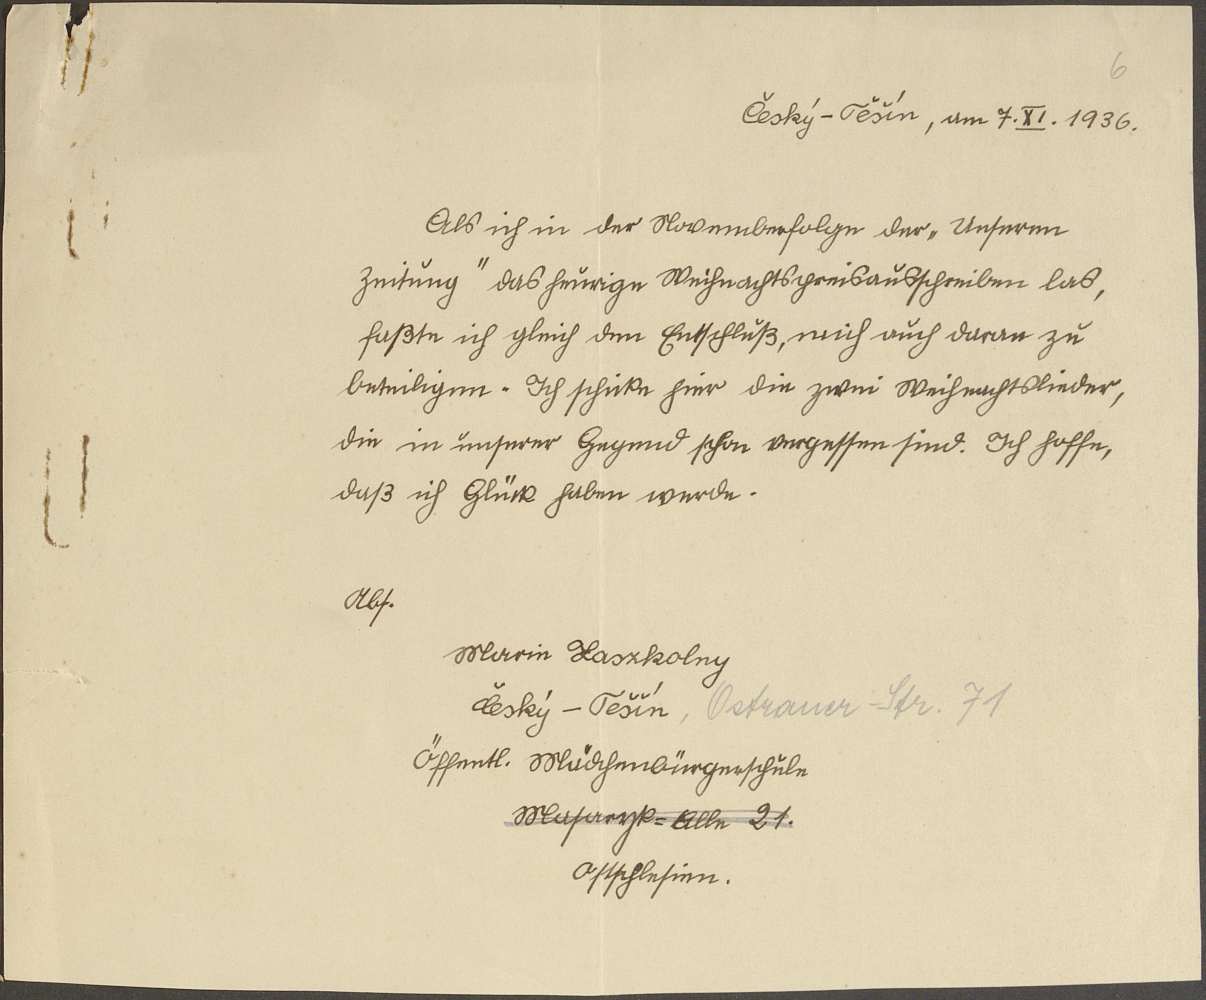 6
Český-Těšín, am 7. XI. 1936.
Als ich in der Novemberfolge der „Unseren
Zeitung" das heurige Weihnachtspreisausschreiben las,
faßte ich gleich den Entschluß, mich auch daran zu
beteiligen. Ich schicke hier die zwei Weihnachtslieder,
die in unserer Gegend schon vergessen sind. Ich hoffe,
daß ich Glück haben werde.
Abs.
Marie Haszkolny
Český-Těšín, Ostrauer-Str. 71
Öffentl. Mädchenbürgerschule
Masaryk=Alle 21.
Ostschlesien.